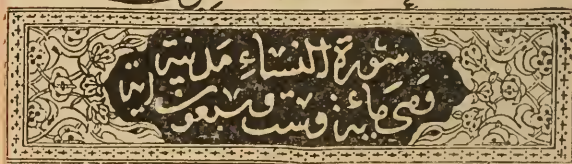 سُورَةُ النِّسَاءِ مَدَنِيَّة
وَهِيَ مِائَة وَسِتّ وَسَبْعُونَ آيَة